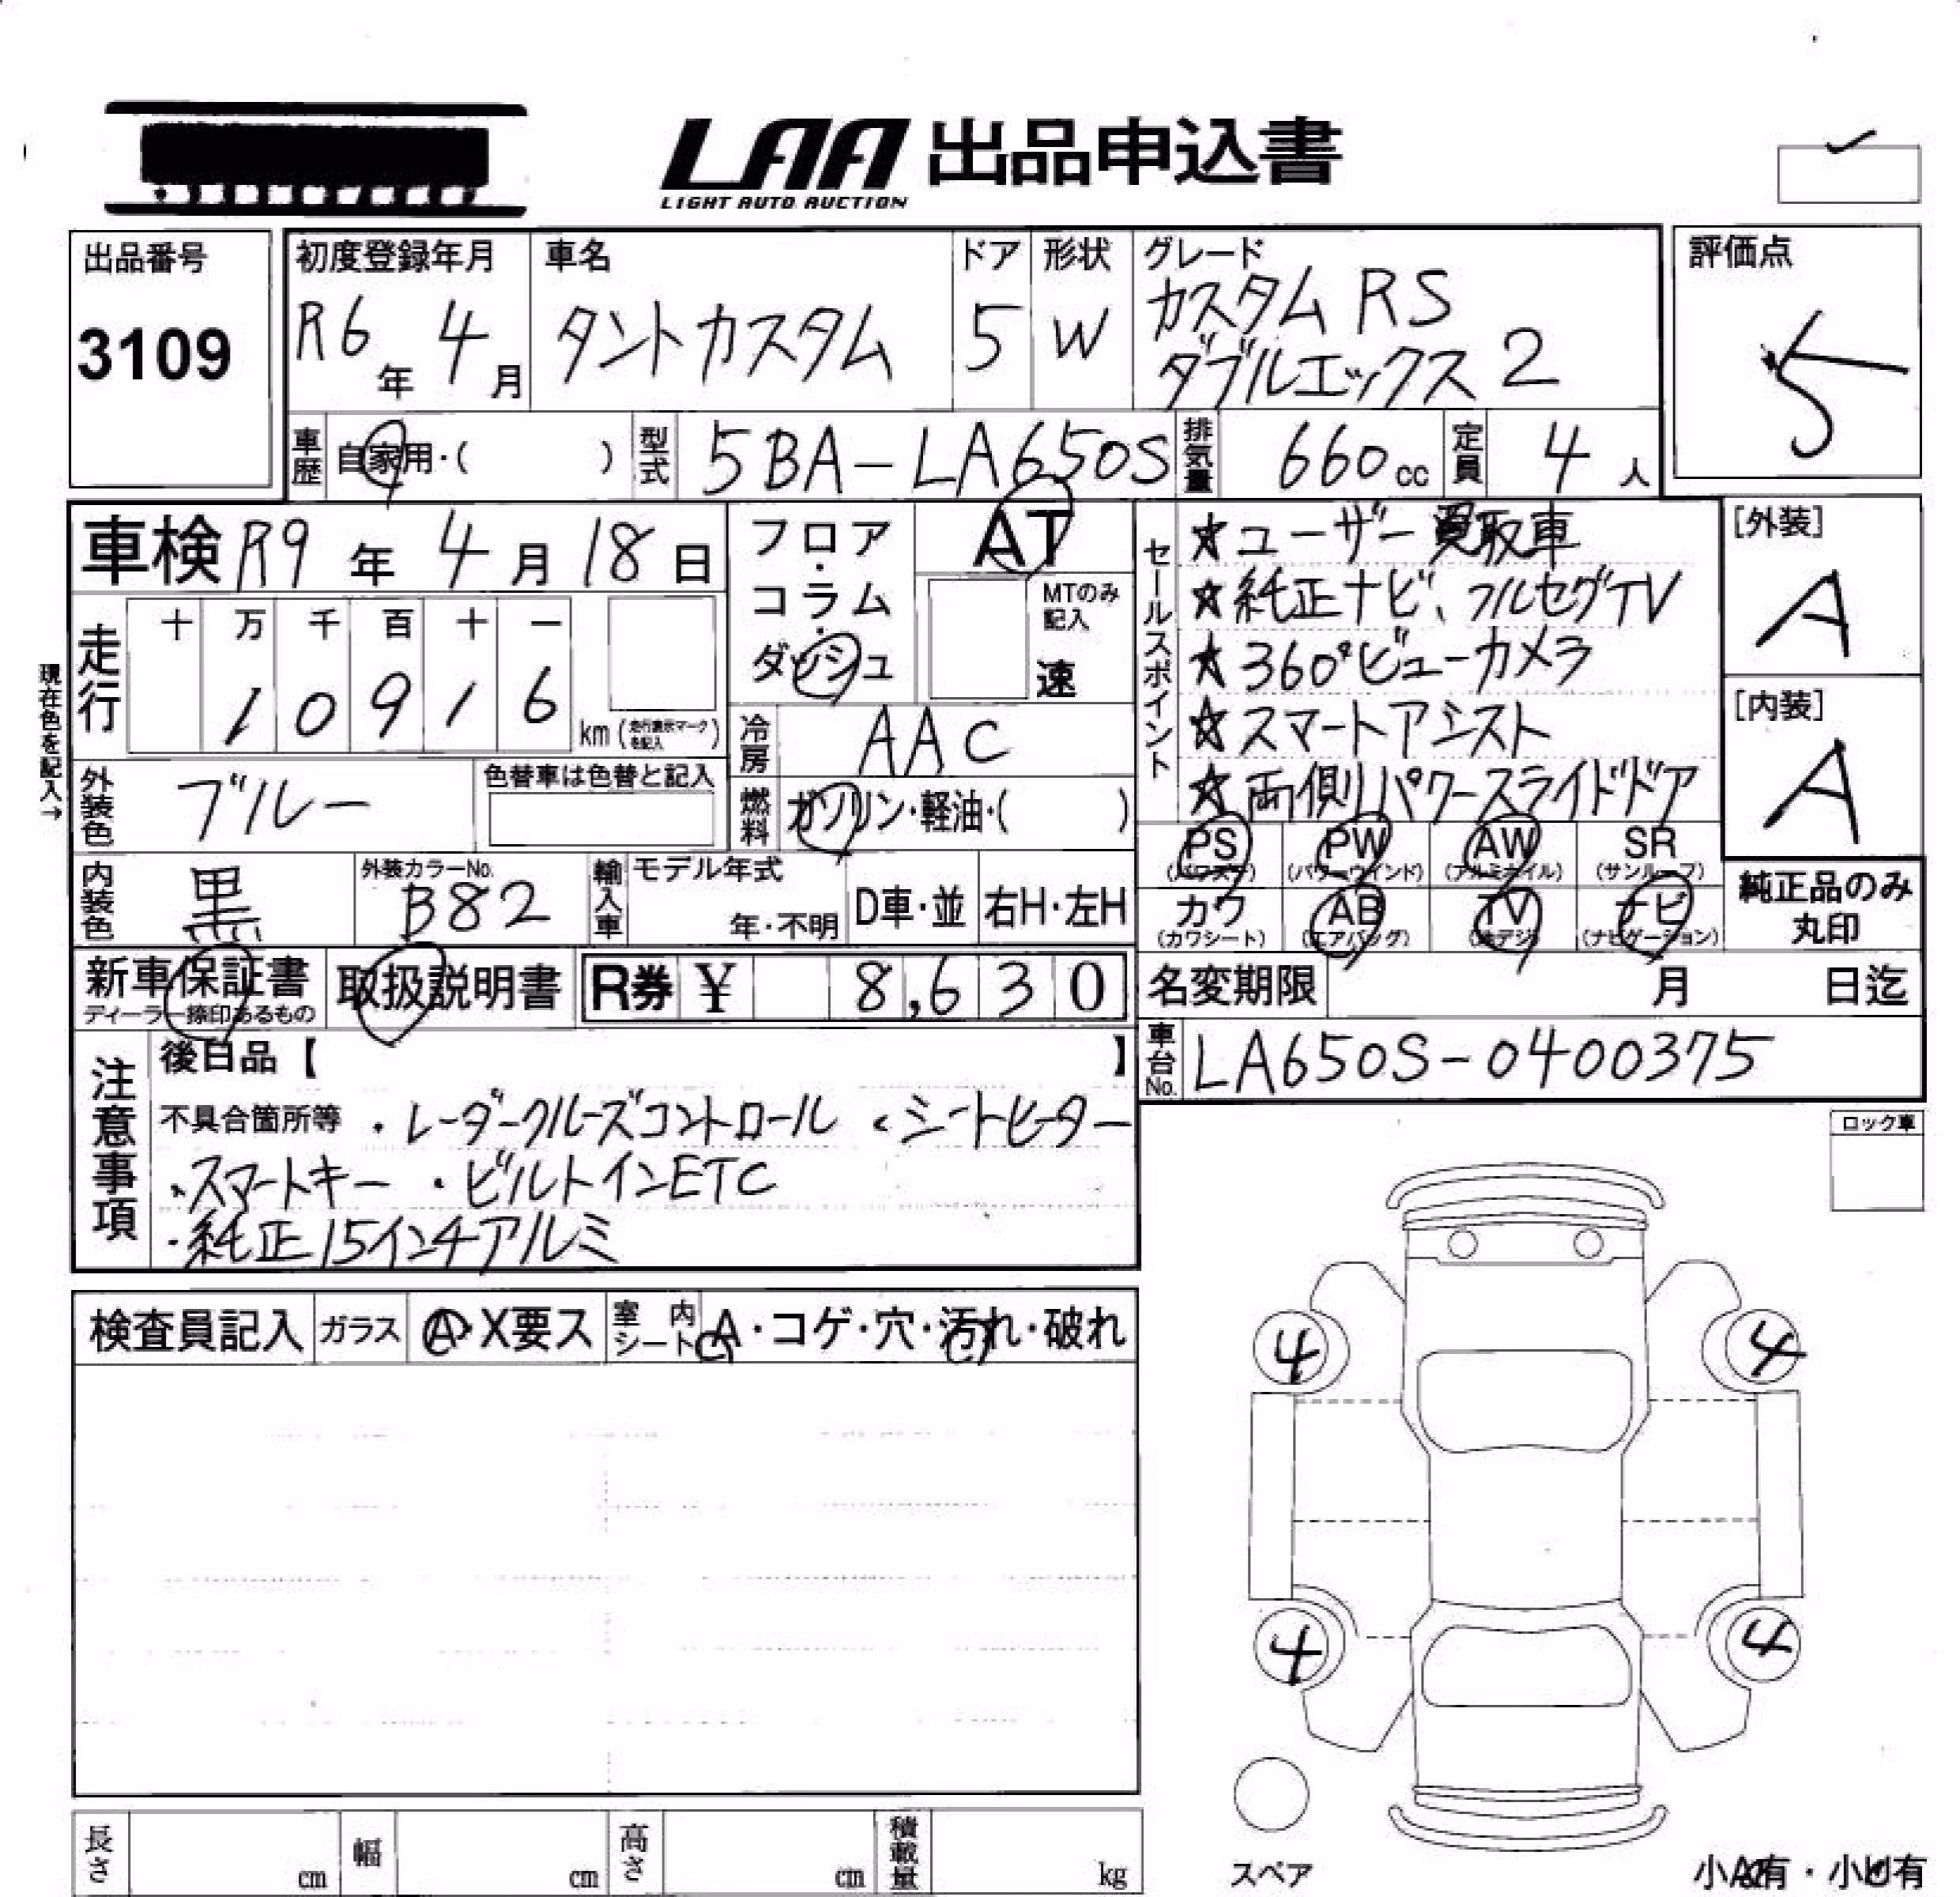 LAA 出品申込書
LIGHT AUTO AUCTION
出品番号
3109
初度登録年月
R6年 4月
車名
タントカスタム
ドア
5
形状
W
グレード
カスタム RS
ダブルエックス 2
評価点
5
車歴 自家用・( )
型式 5BA-LA650S
排気量 660cc
定員 4人
車検 R9年 4月 18日
フロア・コラム・ダッシュ
AT
MTのみ記入
速
セールスポイント
☆ユーザー買取車
☆純正ナビ、フルセグTV
☆360°ビューカメラ
☆スマートアシスト
☆両側パワースライドドア
[外装]
A
[内装]
A
現在色を記入→
走行
十 万 千 百 十 一
1 0 9 1 6 km (走行表示マークを記入)
冷房 AAC
外装色 ブルー
色替車は色替と記入
燃料 ガソリン・軽油・( )
内装色 黒
外装カラーNo.
B82
輸入車
モデル年式
年・不明
D車・並
右H・左H
PS (パワステ)
PW (パワーウインド)
AW (アルミホイル)
SR (サンルーフ)
カワ (カワシート)
AB (エアバッグ)
TV (地デジ)
ナビ (ナビゲーション)
純正品のみ
丸印
新車保証書
ディーラー捺印あるもの
取扱説明書
R券 ¥ 8,630
名変期限 月 日迄
車台No. LA650S-0400375
注意事項
後日品【 】
不具合箇所等 ・レーダークルーズコントロール ・シートヒーター
・スマートキー ・ビルトインETC
・純正15インチアルミ
ロック車
検査員記入
ガラス A・X要ス
室内シート A・コゲ・穴・汚れ・破れ
4 4
4 4
スペア
長さ cm
幅 cm
高さ cm
積載量 kg
小A有・小U有